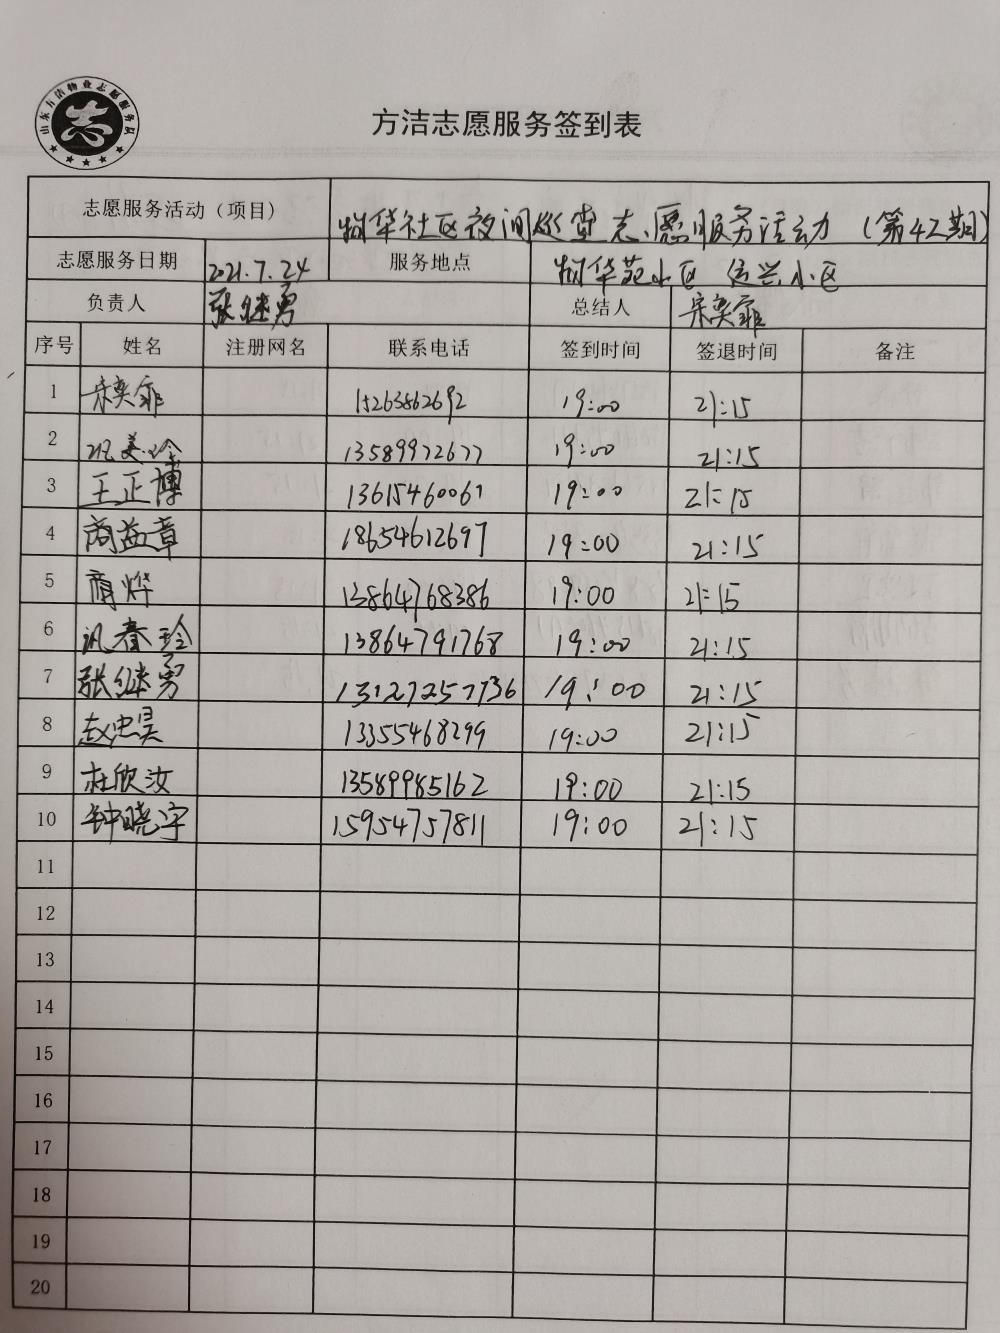 山东方洁物业志愿服务队
志
方洁志愿服务签到表
志愿服务活动（项目） 物华社区夜间巡查志愿服务活动（第42期）
志愿服务日期 2021.7.24 服务地点 物华苑小区 运兴小区
负责人 张继勇 总结人 宋奕霏
序号 姓名 注册网名 联系电话 签到时间 签退时间 备注
1 宋奕霏 15263862692 19:00 21:15
2 美玲 13589972677 19:00 21:15
3 王正博 13615460061 19:00 21:15
4 商益章 18654612697 19:00 21:15
5 商烨 13864768386 19:00 21:15
6 春玲 13864791768 19:00 21:15
7 张继勇 13127257736 19:00 21:15
8 赵忠昊 13355468299 19:00 21:15
9 杜欣汝 13589985162 19:00 21:15
10 钟晓宇 15954757811 19:00 21:15
11
12
13
14
15
16
17
18
19
20